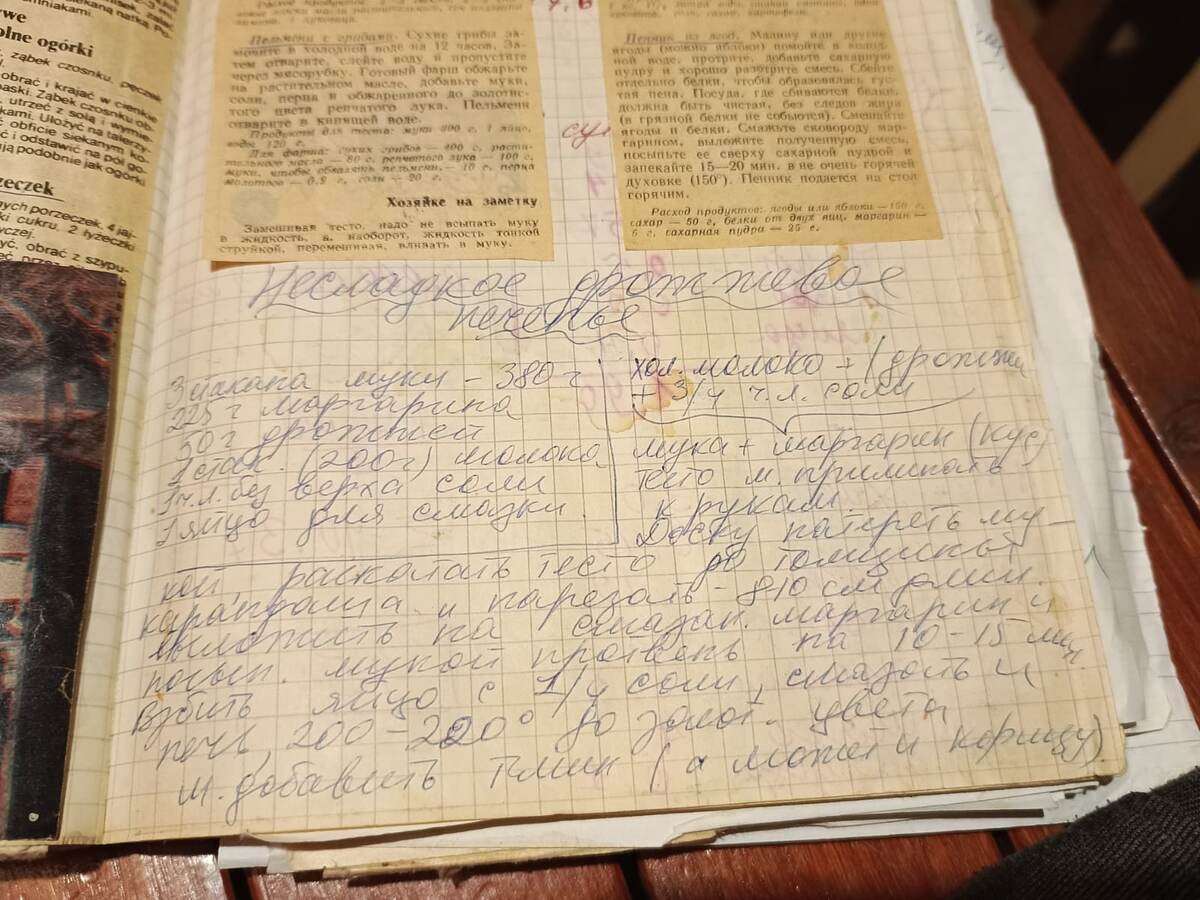 rwe
olne ogórki
ząbek czosnku, pęczek
obrać i krajać w cienkie
paski. Ząbek czosnku ob-
utrzeć z solą i wymie-
kami. Ułożyć na talerzy-
obficie siekanym ko-
i odstawić na pół go-
ają podobnie jak ogórki
zeczek
nych porzeczek, 4 jaj-
ki cukru, 2 łyżeczki
obrać z szypu-
Пельмени с грибами. Сухие грибы за-
мочите в холодной воде на 12 часов. За-
тем отварите, слейте воду и пропустите
через мясорубку. Готовый фарш обжарьте
на растительном масле, добавьте муки,
соли, перца и обжаренного до золотис-
того цвета репчатого лука. Пельмени
отварите в кипящей воде.
Продукты для теста: муки 800 г, 1 яйцо,
воды 120 г.
Для фарша: сухих грибов — 400 г, расти-
тельного масла — 80 г, репчатого лука — 100 г,
муки, чтобы обвалять пельмени, — 10 г, перца
молотого — 0,2 г, соли — 20 г.
Хозяйке на заметку
Замешивая тесто, надо не всыпать муку
в жидкость, а, наоборот, жидкость тонкой
струйкой, перемешивая, вливать в муку.
Пенник из ягод. Малину или другие
ягоды (можно яблоки) помойте в холод-
ной воде, протрите, добавьте сахарную
пудру и хорошо разотрите смесь. Сбейте
отдельно белки, чтобы образовалась гус-
тая пена. Посуда, где сбиваются белки,
должна быть чистая, без следов жира
(в грязной белки не собьются). Смешайте
ягоды и белки. Смажьте сковороду мар-
гарином, выложите полученную смесь,
посыпьте ее сверху сахарной пудрой и
запекайте 15—20 мин. в не очень горячей
духовке (150°). Пенник подается на стол
горячим.
Расход продуктов: ягоды или яблоки — 150 г,
сахар — 50 г, белки от двух яиц, маргарин —
5 г, сахарная пудра — 25 г.
Несладкое дрожжевое
печенье
3 стакана муки – 380 г
225 г маргарина
50 г дрожжей
1 стак. (200г) молока
1 ч.л. без верха соли
1 яйцо для смазки.
хол. молоко + (дрожжи
+ 3/4 ч.л. соли
мука + маргарин (кус)
тесто м. прилипать
к рукам.
Доску натереть му-
кой, раскатать тесто до толщины
карандаша и нарезать – 8-10 см длин.
выложить на смазан. маргарин и
посып. мукой противень на 10-15 мин.
Взбить яйцо с 1/4 соли, смазать и
печь 200-220° до золот. цвета
м. добавить тмин (а может и корицу).